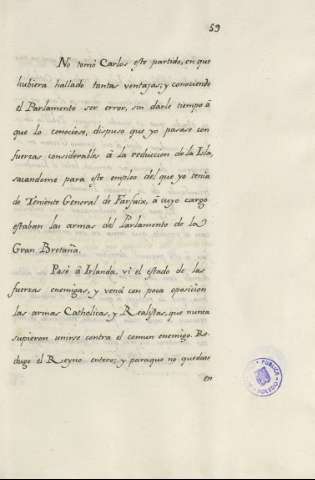 59
No tomó Carlos este partido, en que
hubiera hallado tantas ventajas; y conociendo
el Parlamento ser error, sin darle tiempo á
que lo conociese, dispuso que yo pasase con
fuerzas considerables á la reduccion de la Isla,
sacandome para este empleo del que yo tenia
de Teniente General de Farfaix, á cuyo cargo
estaban las armas del Parlamento de la
Gran Bretaña.
Pasé á Irlanda, vi el estado de las
fuerzas enemigas, y vencí con poca oposicion
las armas Catholicas, y Realistas, que nunca
supieron unirse contra el comun enemigo. Re-
duge el Reyno entero; y paraque no quedase
en
PUBLICA
TOLEDO